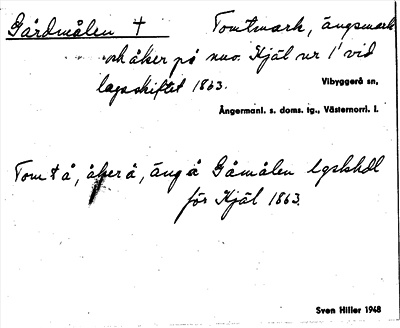 Gårdmålen † Tomtmark, ängsmark
och åker på nuv. Kjäl nr 1 vid
lagaskiftet 1863.
Vibyggerå sn,
Ångermanl. s. doms. tg., Västernorrl. l.
Tomt å, åker å, äng å Gåmålen lgskhdl
för Kjäl 1863.
Sven Hiller 1948